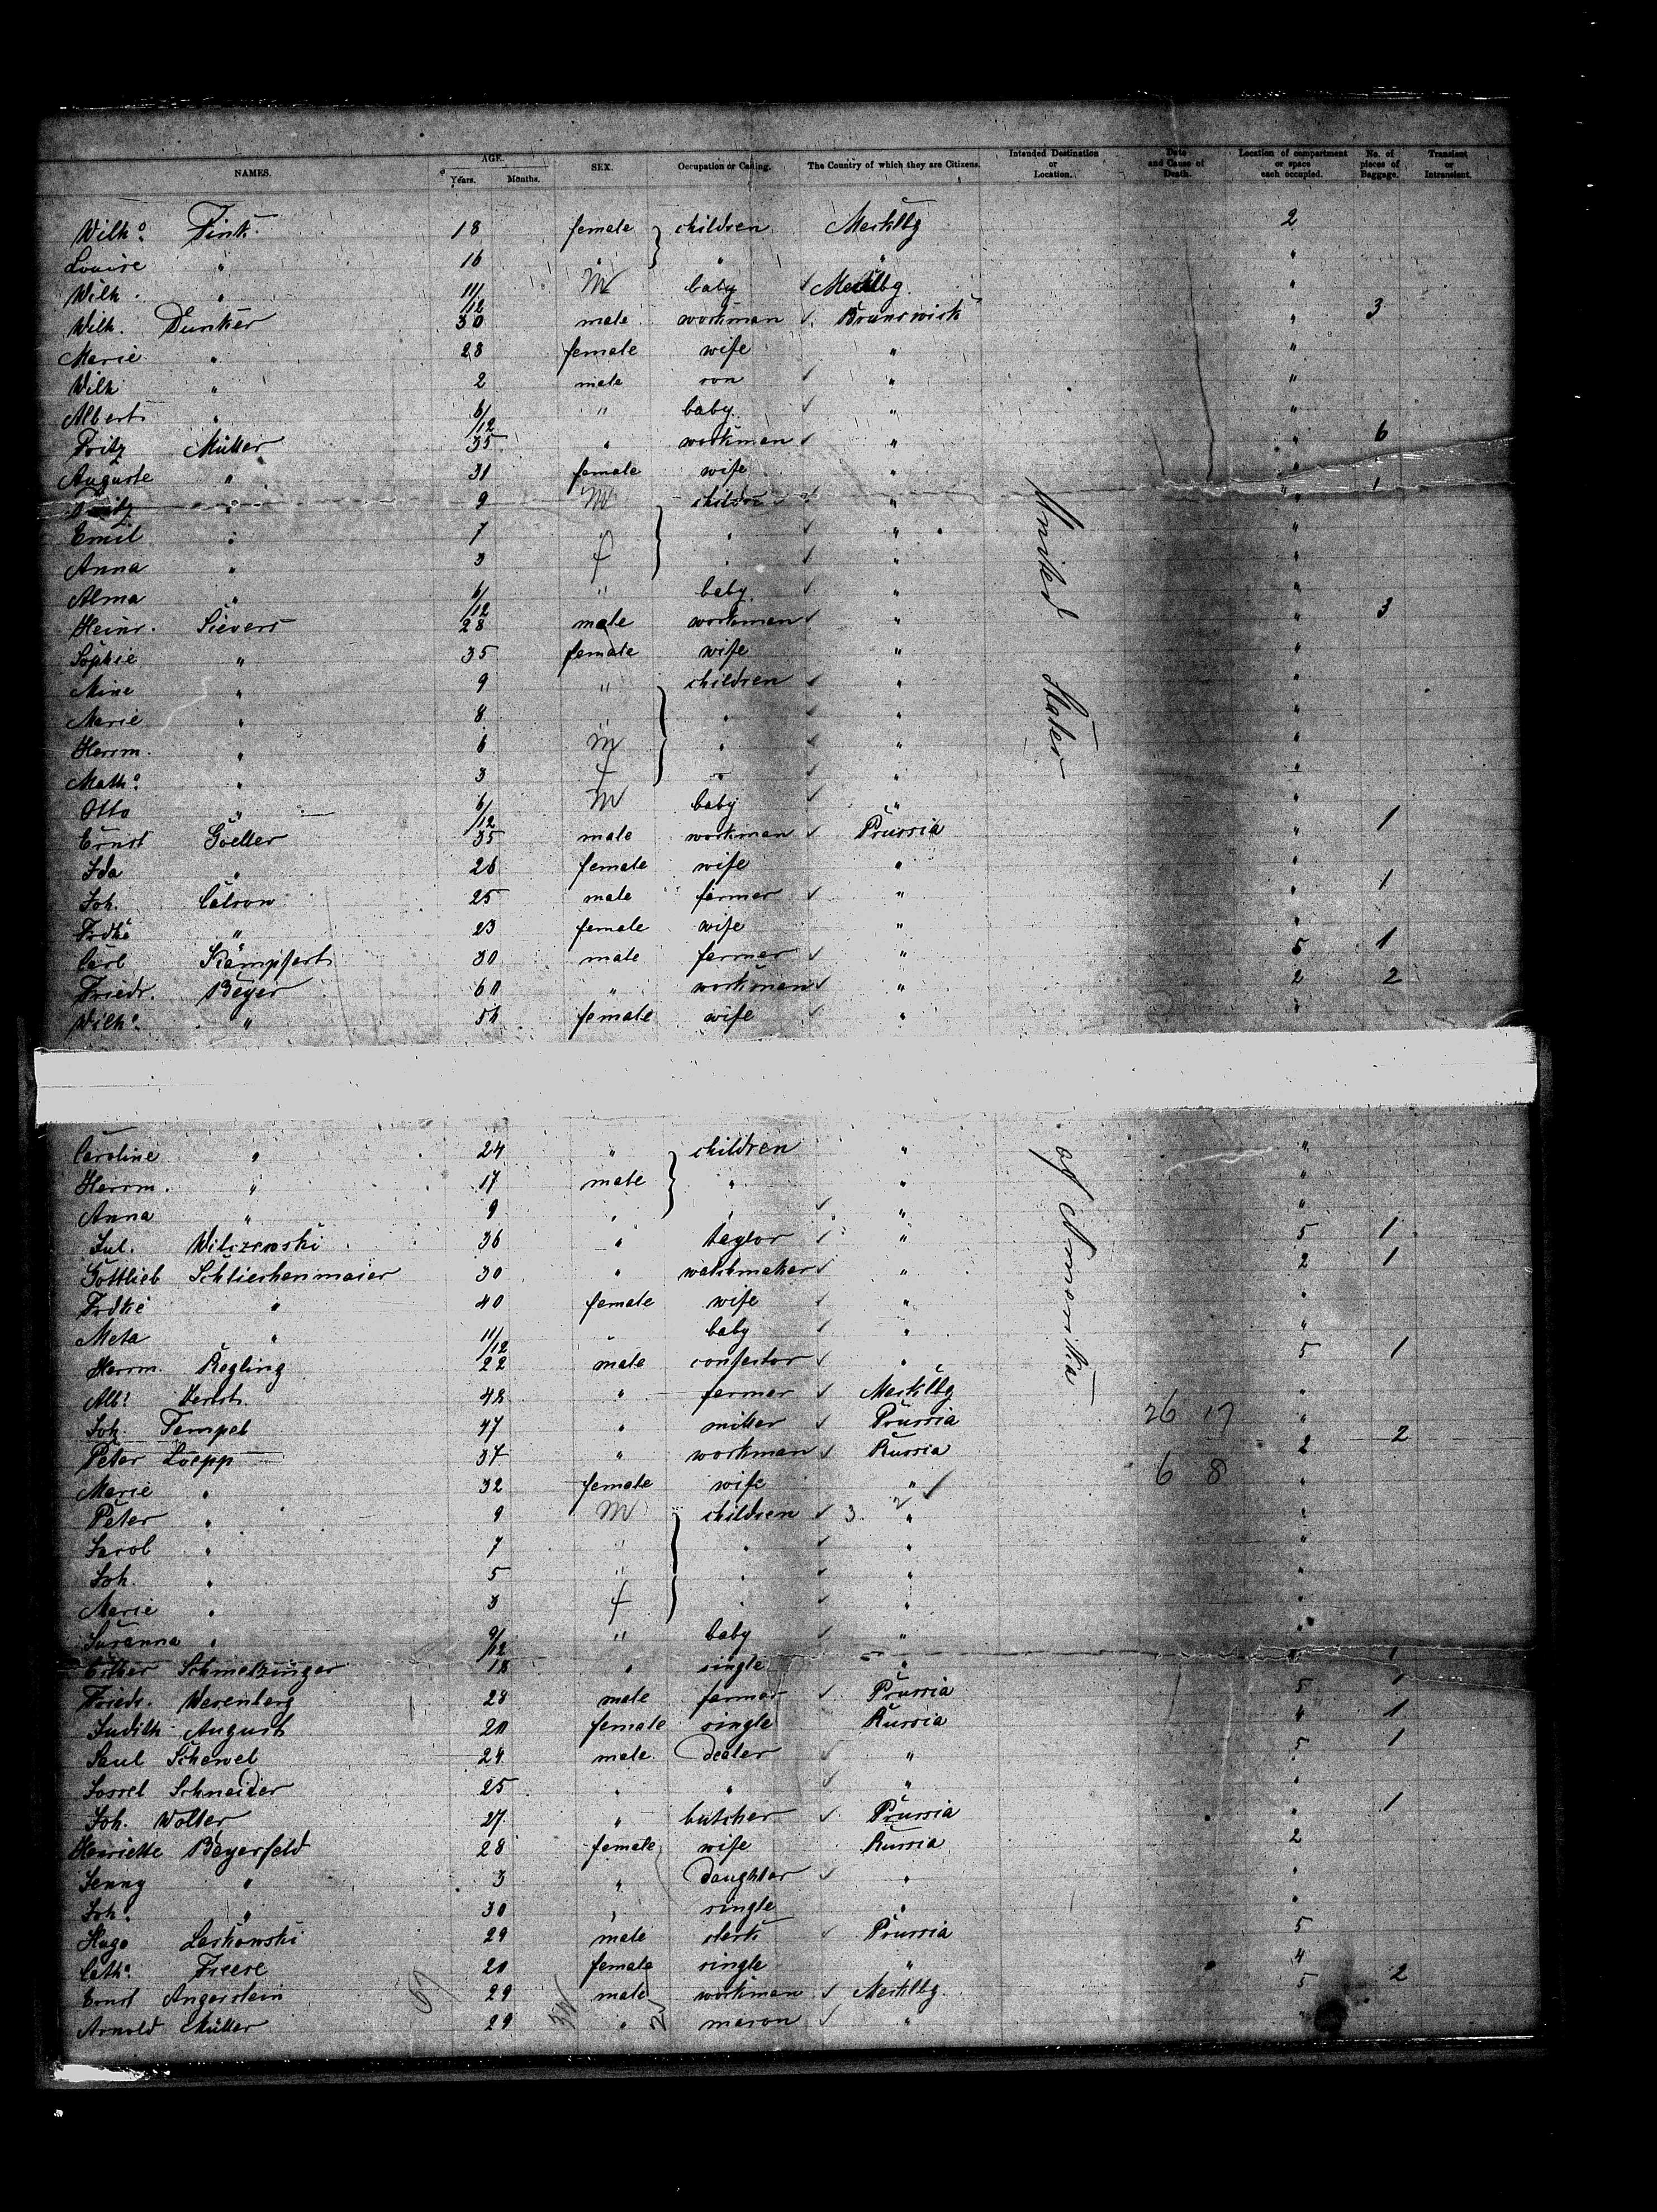 NAMES. AGE. Years. Months. SEX. Occupation or Calling. The Country of which they are Citizens. Intended Destination or Location. Date and Cause of Death. Location of compartment or space each occupied. No. of pieces of Baggage. Transient or Intransient.
Wilhe. Fink. 18 female children Mecklbg 2
Louise " 16 " " " "
Wilh. " 11/12 M baby Mecklbg. "
Wilh. Dunker 30 male workman Brunswick " 3
Marie " 28 female wife " "
Wilh " 2 male son " "
Albert " 6/12 " baby " "
Fritz Müller 35 " workman " " 6
Auguste " 31 female wife " "
Fritz " 9 M children " "
Emil " 7 " " " "
Anna " 3 f " " "
Alma " 6/12 " baby " "
Heinr. Sievers 28 male workman " " 3
Sophie " 35 female wife " "
Mine " 9 " children " "
Marie " 8 " " " "
Herrm. " 6 M " " "
Mathe. " 3 f " " "
Otto " 6/12 M baby " "
Ernst Goeller 35 male workman Prussia " 1
Ida " 26 female wife " "
Joh. 25 male farmer " " 1
Frdke " 23 female wife " "
Carl Kämpfert 30 male farmer " 5 1
Friedr. Beyer 60 " workman " 2 2
Wilhe. " 54 female wife " "
United States
Caroline " 24 " children " "
Herrm. " 17 male " " "
Anna " 9 " " " "
Jul. Wilczewski 36 " taylor " 5 1
Gottlieb Schliechenmaier 30 " watchmaker " 2 1
Frdke " 40 female wife " "
Meta " 11/12 " baby " "
Herrm. Regling 22 male confector " 5 1
Alb. 48 " farmer Mecklbg "
Joh. Tempel 47 " miller Prussia 26 17 "
Peter Loepp 37 " workman Russia 2 2
Marie " 32 female wife " 6 8 "
Peter " 9 M children 3 " "
Jacob " 7 " " " "
Joh. " 5 " " " "
Marie " 3 f " " "
Susanna " 9/12 " baby " "
Esther Schmelzinger 18 " single " " 1
Friedr. Werenberg 28 male farmer Prussia 5 1
Judith August 20 female single Russia 4 1
Saul Schewel 24 male dealer " 5 1
Jossel Schneider 25 " " " "
Joh. Wolter 27 " butcher Prussia " 1
Henriette Beyerfeld 28 female wife Russia 2
Jenny " 3 " daughter " "
Joh. " 30 " single " "
Hugo Laskowski 29 male clerk Prussia 5
Cathe. Freese 20 female single " 4
Ernst Angerstein 29 male workman Mecklbg. 5 2
Arnold Müller 29 " mason " "
of Amerika